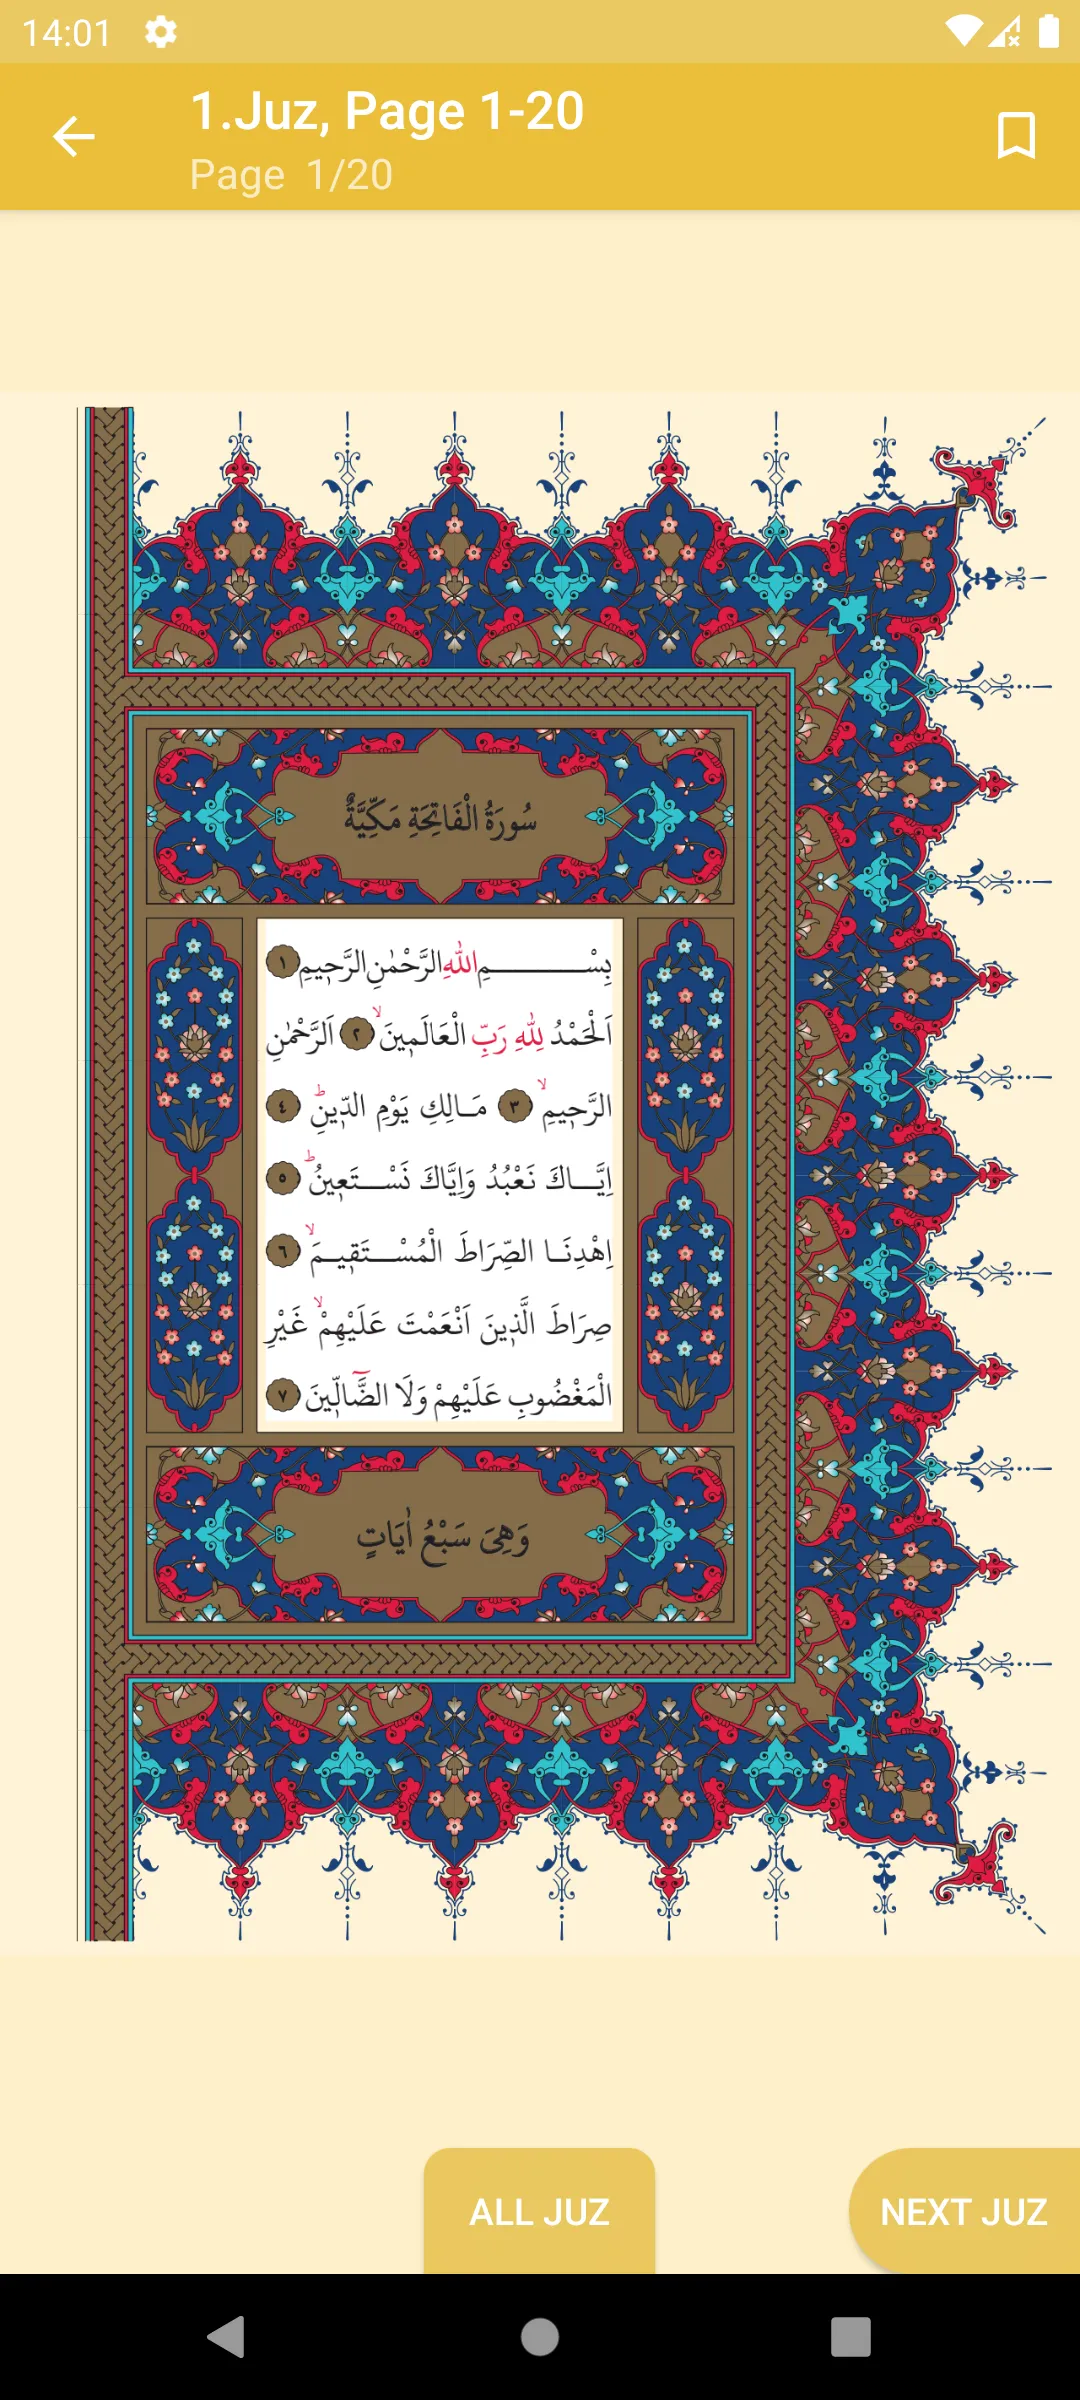 14:01
1.Juz, Page 1-20
Page 1/20
سُورَةُ الْفَاتِحَةِ مَكِّيَّةٌ
بِسْــــمِ اللّٰهِ الرَّحْمٰنِ الرَّح۪يمِ ١
اَلْحَمْدُ لِلّٰهِ رَبِّ الْعَالَم۪ينَۙ ٢ اَلرَّحْمٰنِ
الرَّح۪يمِۙ ٣ مَـالِكِ يَوْمِ الدّ۪ينِۜ ٤
اِيَّـــاكَ نَعْبُدُ وَاِيَّاكَ نَسْـــتَع۪ينُۜ ٥
اِهْدِنَــا الصِّرَاطَ الْمُسْـــتَق۪يـمَۙ ٦
صِرَاطَ الَّذ۪ينَ اَنْعَمْتَ عَلَيْهِمْۙ غَيْرِ
الْمَغْضُوبِ عَلَيْهِمْ وَلَا الضَّٓالّ۪ينَ ٧
وَهِىَ سَبْعُ اٰيَاتٍ
ALL JUZ
NEXT JUZ